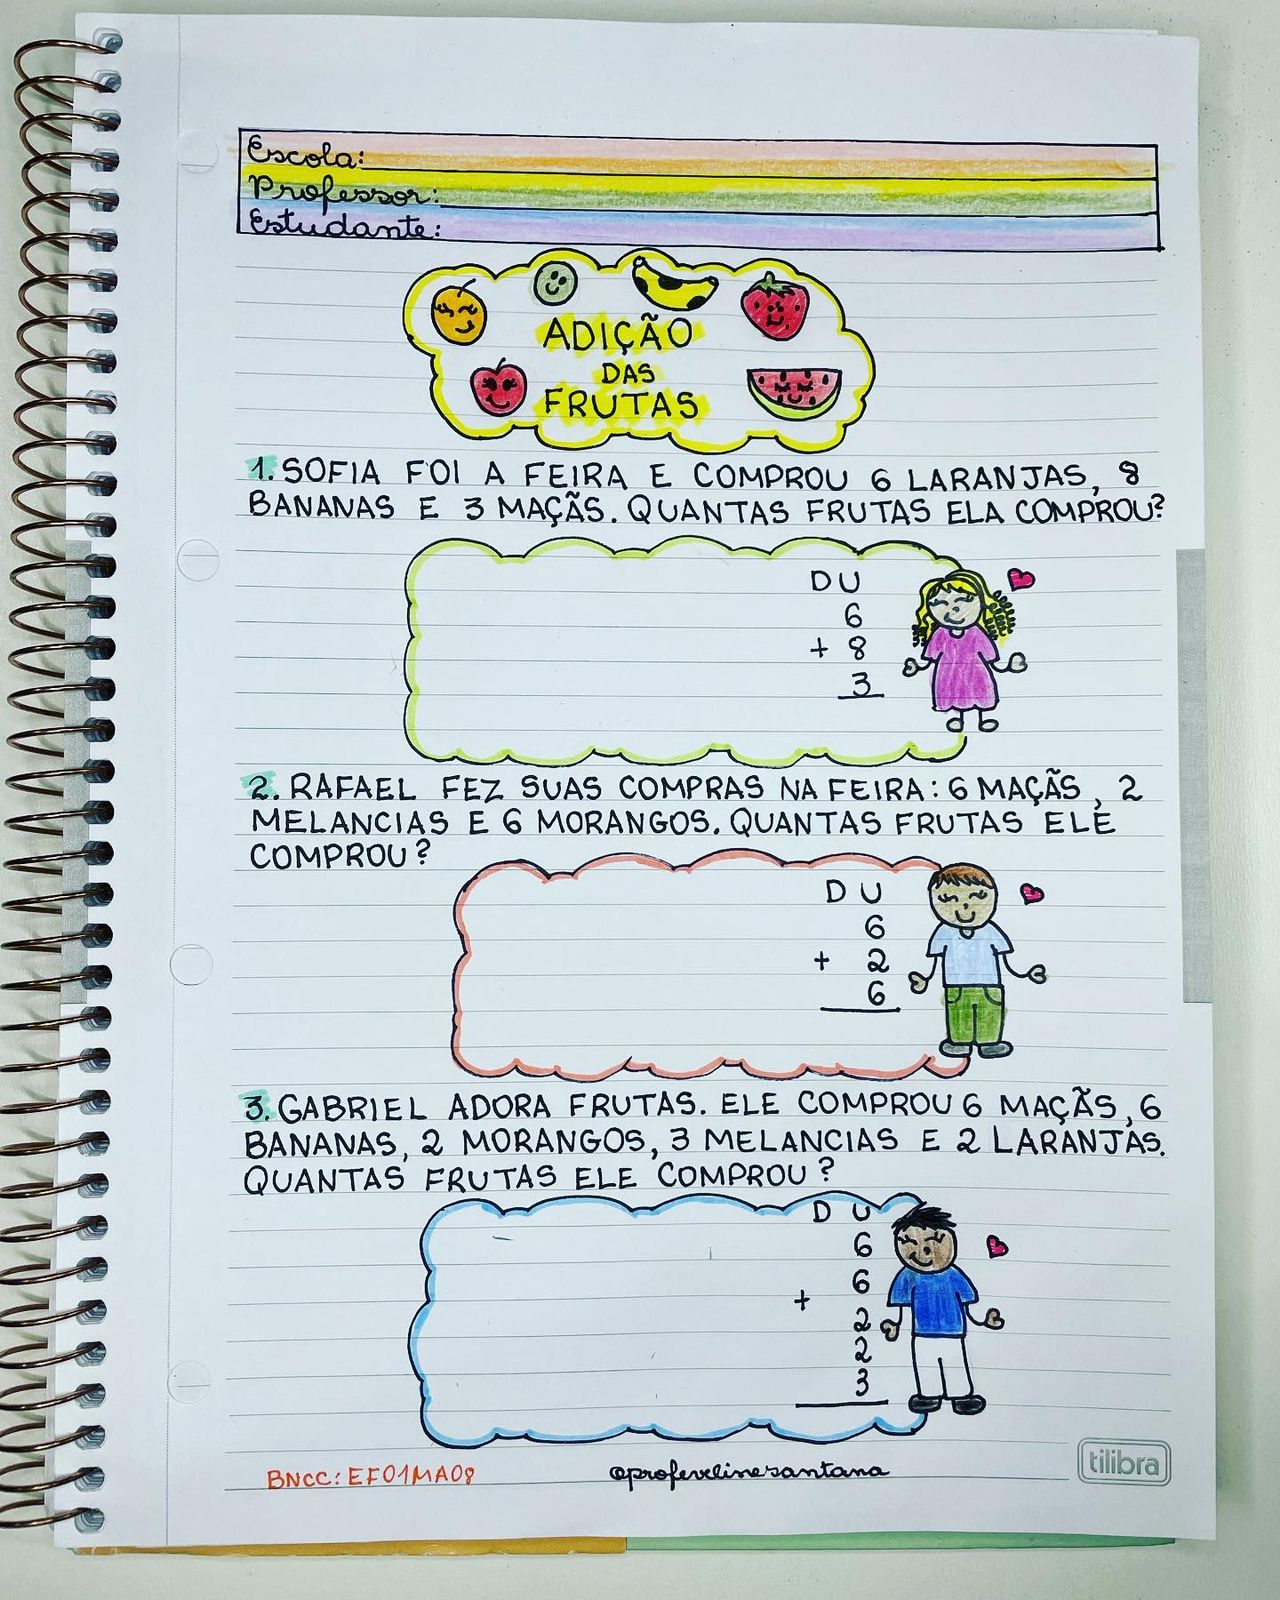 Escola:
Professor:
Estudante:
ADIÇÃO
DAS
FRUTAS
1. SOFIA FOI A FEIRA E COMPROU 6 LARANJAS, 8
BANANAS E 3 MAÇÃS. QUANTAS FRUTAS ELA COMPROU?
D U
6
+ 8
3
2. RAFAEL FEZ SUAS COMPRAS NA FEIRA: 6 MAÇÃS, 2
MELANCIAS E 6 MORANGOS. QUANTAS FRUTAS ELE
COMPROU?
D U
6
+ 2
6
3. GABRIEL ADORA FRUTAS. ELE COMPROU 6 MAÇÃS, 6
BANANAS, 2 MORANGOS, 3 MELANCIAS E 2 LARANJAS.
QUANTAS FRUTAS ELE COMPROU?
D U
6
6
+
2
2
3
BNCC: EF01MA08 @profevelinesantana
tilibra